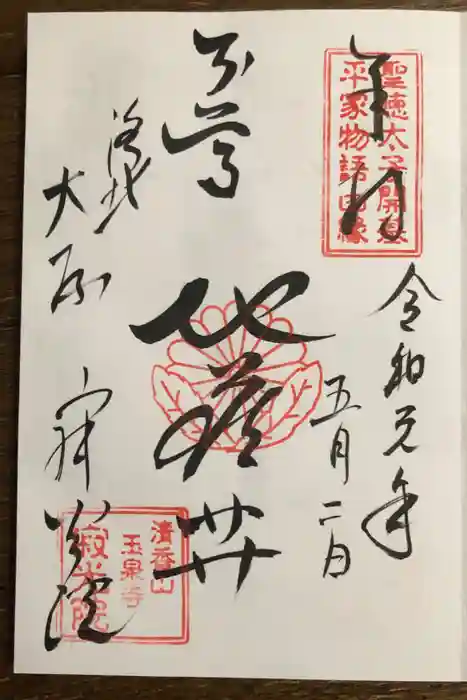 聖徳太子開基
平家物語由縁
奉拝
令和元年
五月二日
本尊
地蔵𦬇
洛北
大原
寂光院
清香山
玉泉寺
寂光院